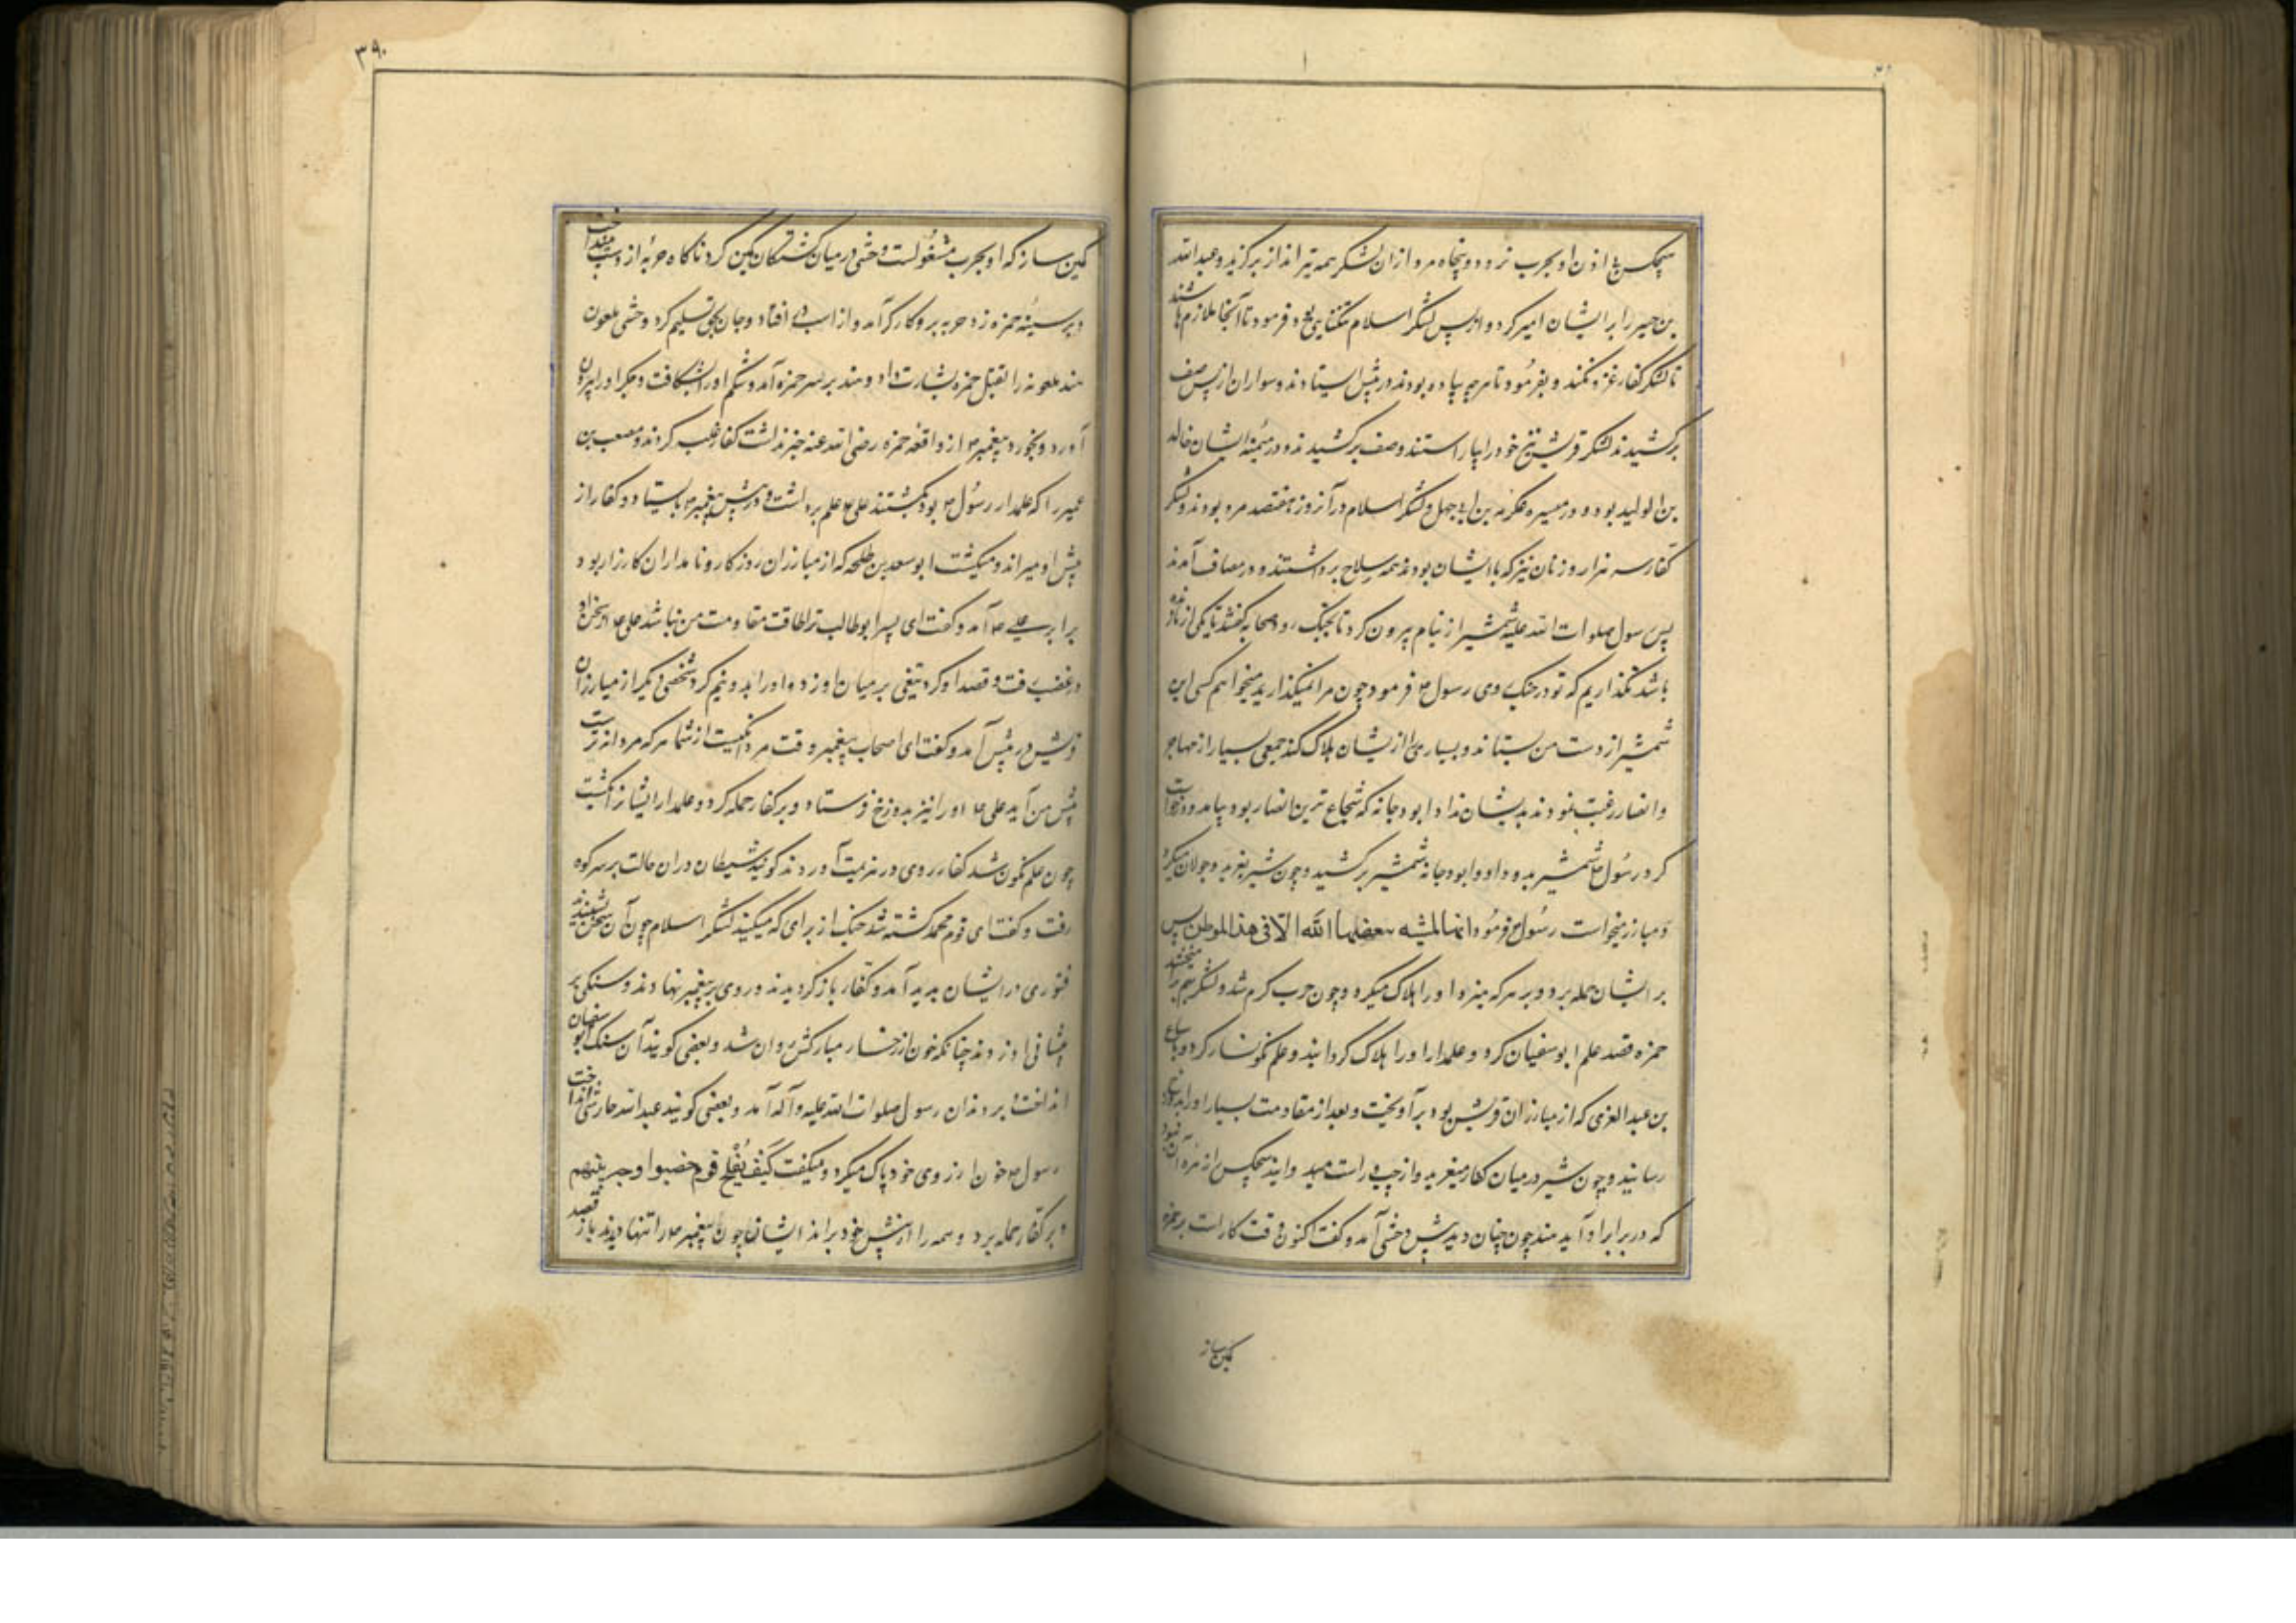 هیچکس بی اذن او بحرب نرود و پنجاه مرد از ان لشکر همه تیرانداز برگزید و عبدالله
بن جبیر را بر ایشان امیر کرد و از پس لشکر اسلام تنگنایی بود فرمود تا آنجا ملازم باشند
تا لشکر کفار غزو نکنند و بفرمود تا هرچه پیاده بودند در پیش ایستادند و سواران از پس صف
برکشیدند لشکر قریش نیز خود را بیاراستند و صف برکشیدند و در میمنه ایشان خالد
بن الولید بود و در میسره عکرمه بن ابی جهل و لشکر اسلام در آنروز هفتصد مرد بودند و لشکر
کفار سه هزار و زنان نیز که با ایشان بودند همه سلاح برداشتند و در مصاف آمدند
پس رسول صلوات الله علیه شمشیر از نیام بیرون کرد تا بجنگ رود صحابه گفتند تا یکی از ما زنده
باشد نگذاریم که تو در جنگ روی رسول فرمود چون مرا نمیگذارید میخواهم کسی این
شمشیر از دست من بستاند و بسیاری را از ایشان هلاک کند جمعی بسیار از مهاجر
و انصار رغبت نمودند بدیشان نداد ابودجانه که شجاع ترین انصار بود بیامد و درخواست
کرد رسول شمشیر بدو داد و ابودجانه شمشیر برکشید و چون شیر بغرید و جولان میکرد
و مبارز میخواست رسول فرمود انها لمشیه یبغضها الله الا فی هذا الموطن پس
بر ایشان حمله برد و بر هر که میزد او را هلاک میکرد و چون حرب گرم شد و لشکر بهم برآمیختند
حمزه قصد علم ابوسفیان کرد و علمدار او را هلاک گردانید و علم نگونسار کرد و با سباع
بن عبد العزی که از مبارزان قریش بود برآویخت و بعد از مقاومت بسیار او را بدوزخ
رسانید و چون شیر در میان کفار میغرید و از چپ و راست میدوانید هیچکس را زهره آن نبود
که در برابر او آید هند چون چنان دید پیش وحشی آمد و گفت اکنون وقت کار است بر حمزه
کمین ساز
۳۹۰
کمین ساز که او بحرب مشغولست وحشی در میان کشتگان کمین کرد ناگاه حربه از دست بینداخت
و بر سینه حمزه زد حربه برو کارگر آمد و از اسب در افتاد و جان بحق تسلیم کرد وحشی ملعون
هند ملعونه را بقتل حمزه بشارت داد و هند بر سر حمزه آمد و شکم او را بشکافت و جگر او را بیرون
آورد و بخورد پیغمبر از واقعه حمزه رضی الله عنه خبر نداشت کفار غلبه کردند و مصعب بن
عمیر را که علمدار رسول بود بکشتند علی علم برداشت و در پیش پیغمبر بایستاد و کفار از
پیش او میراند و میکشت ابو سعد بن طلحه که از مبارزان روزگار و نامداران کارزار بود
برابر علی آمد و گفت ای پسر ابوطالب ترا طاقت مقاومت من نباشد علی از سخن او
در غضب رفت و قصد او کرد تیغی بر میان او زد و او را بدو نیم کرد شخصی دیگر از مبارزان
قریش در پیش آمد و گفت ای اصحاب پیغمبر وقت مردانگیست از شما هر که مردانه تر است
پیش من آید علی او را نیز بدوزخ فرستاد و بر کفار حمله کرد و علمدار ایشانرا بکشت
چون علم نگون شد کفار روی در هزیمت آوردند گویند شیطان در ان حالت بر سر کوه
رفت و گفت ای قوم محمد کشته شد جنگ از برای که میکنید لشکر اسلام چون آن سخن بشنیدند
فتوری در ایشان پدید آمد و کفار بازگردیدند و روی بر پیغمبر نهادند و سنگی بر
پیشانی او زدند چنانکه خون از رخسار مبارکش روان شد و بعضی گویند آن سنگ ابو سفیان
انداخت و بر دندان رسول صلوات الله علیه و آله آمد و بعضی گویند عبدالله حارثی انداخت
رسول خون از روی خود پاک میکرد و میگفت کیف یفلح قوم خضبوا وجه نبیهم
و بر کفار حمله برد و همه را از پیش خود براند ایشان چون پیغمبر را تنها دیدند باز قصد